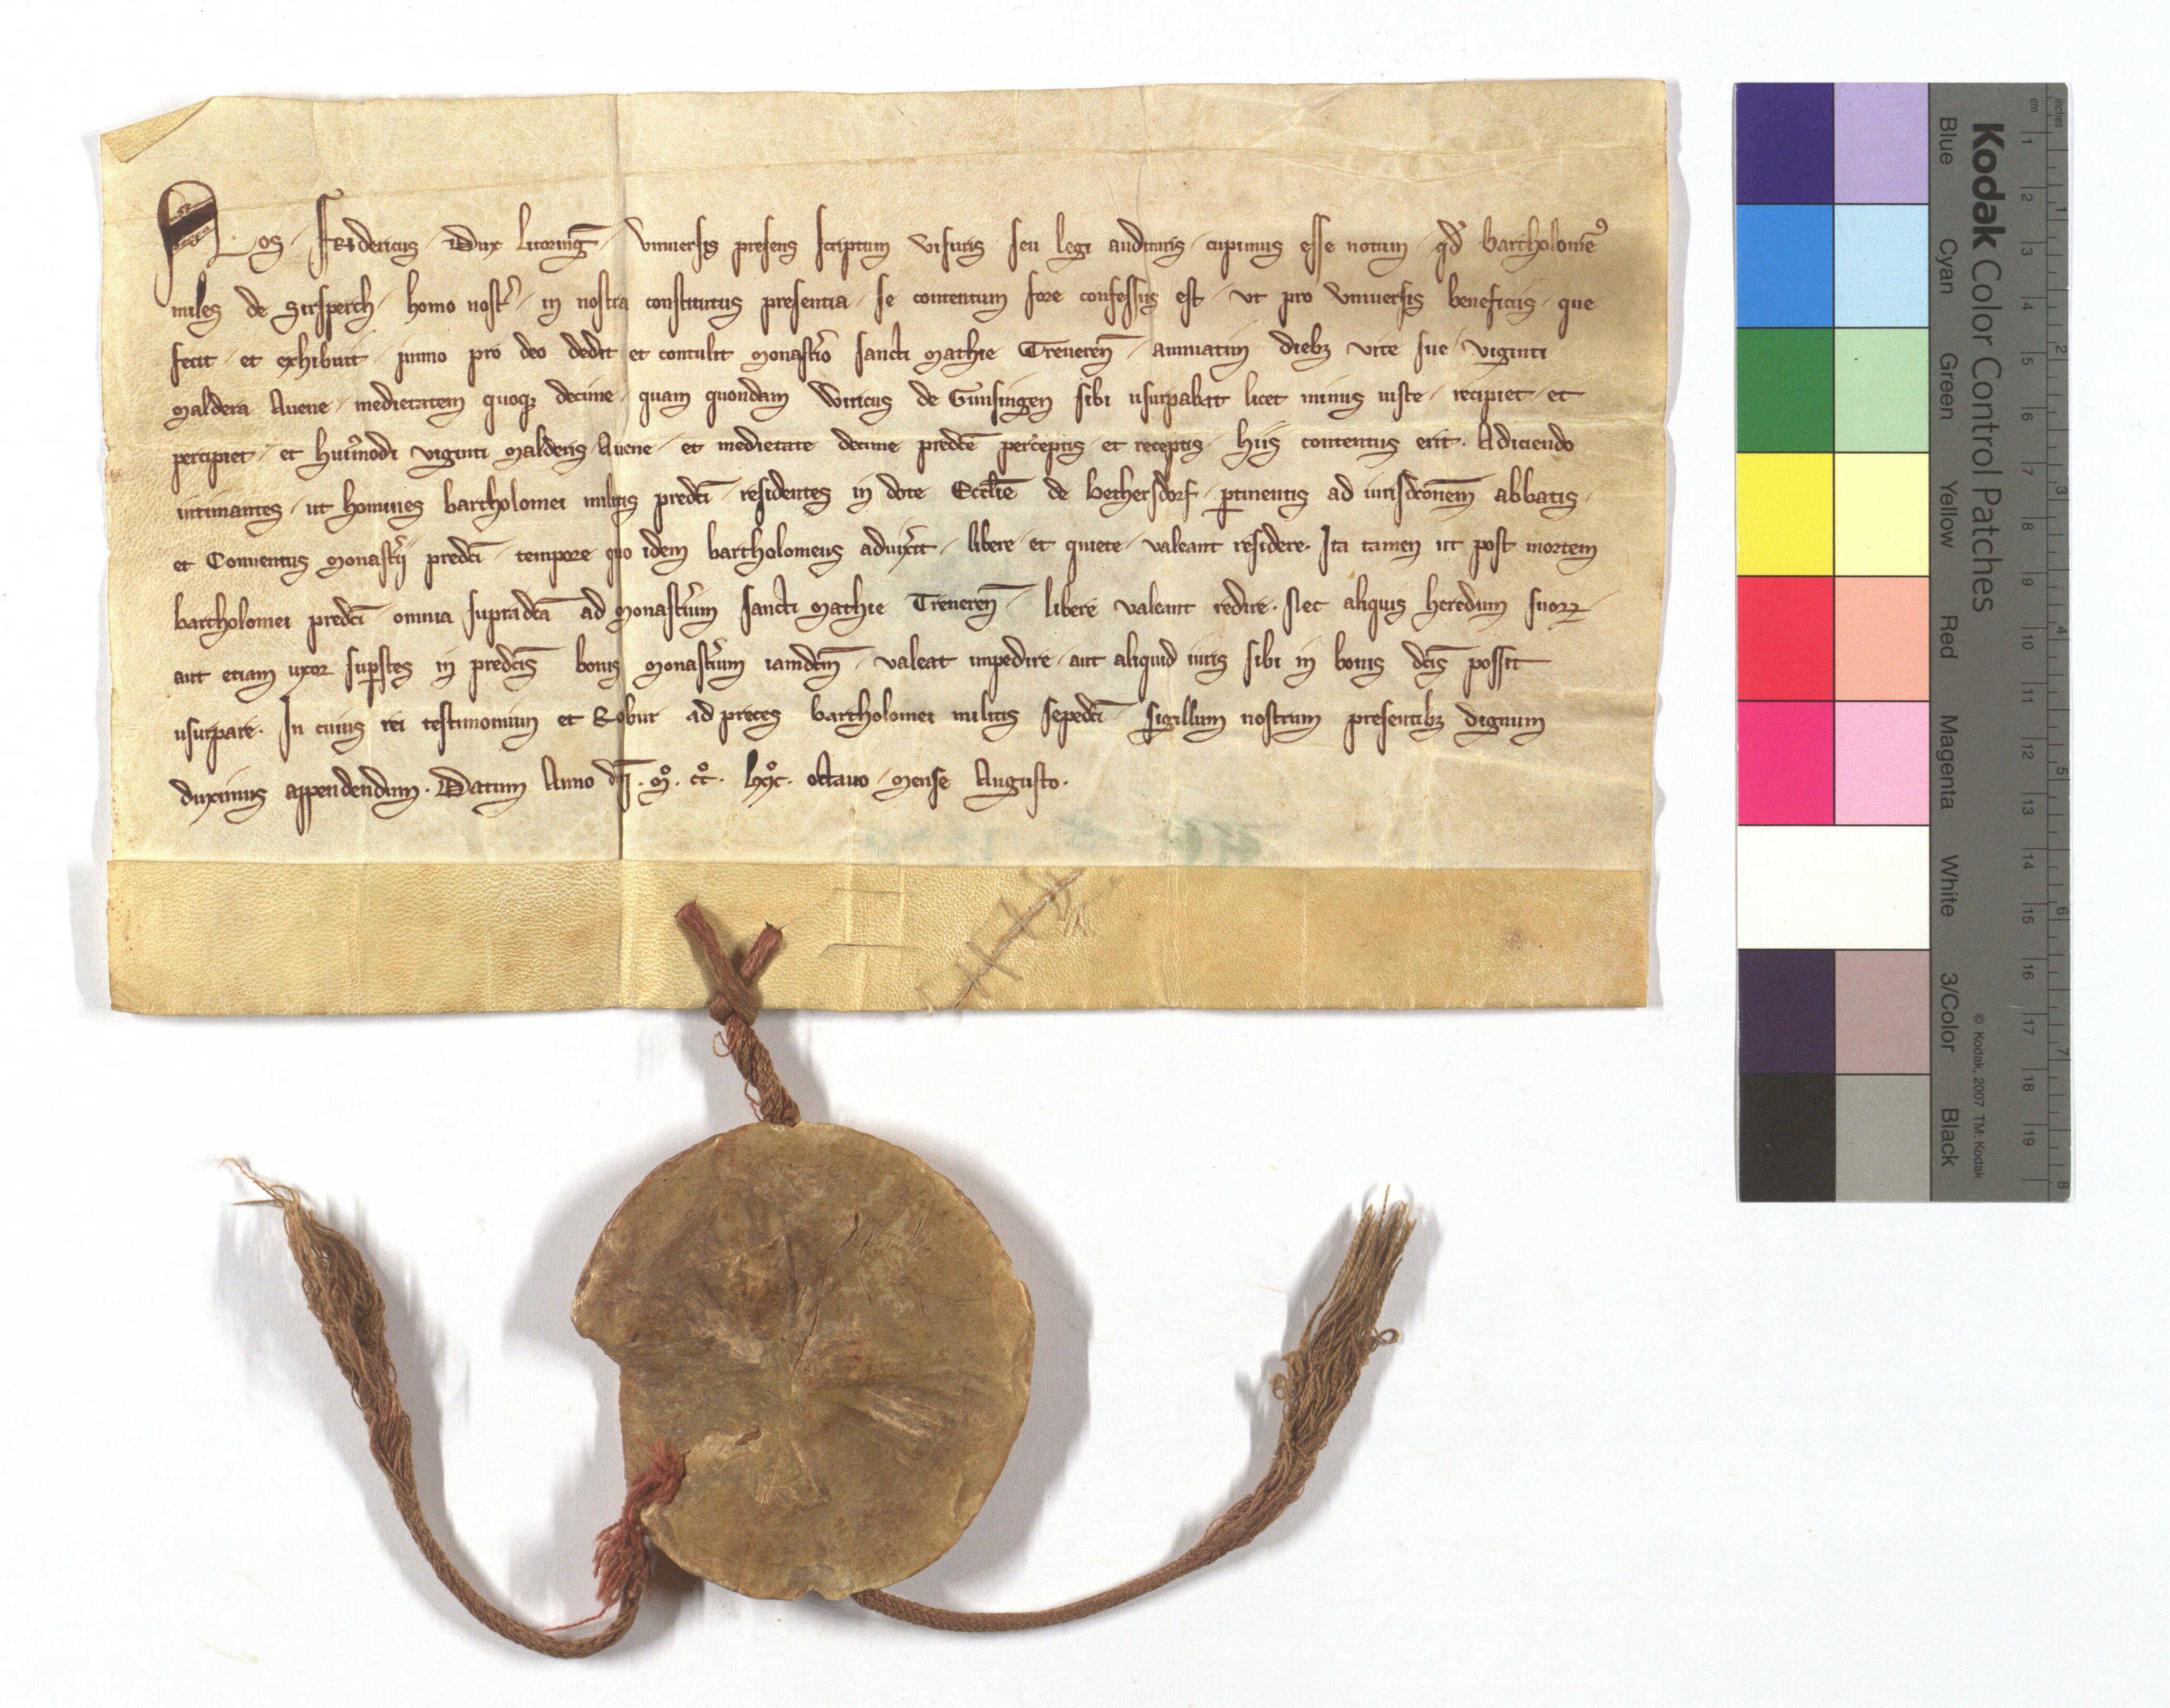 Nos Fridericus Dux Lotoringͣ vniuersis presens scriptum visuris seu legi audituris cupimus esse notum qd̕ bartholome᷒
miles de Sirsperch homo nostr̕ in nostra constitutus presentia se contentum fore confessus est vt pro vniuersis beneficiis que
fecit et exhibuit immo pro deo dedit et contulit monast̕io sancti mathie Treueren̄ annuatim diebꝫ vite sue viginti
maldera Auene medietatem quoqꝫ decime quam quondam Wiricus de Gunsingen sibi usurpabat licet minus iuste recipiet et
percipiet et hui᷒modi viginti malderis Auene et medietate decime predc̄e perceptis et receptis hiis contentus erit. Adiciendo
intimantes ut homines bartholomei militis predc̄i residentes in dote Eccl̄ie de bethersdorf ꝑtinentis ad iurisdc̄onem abbatis
et Conuentus monast̕ij predc̄i tempore quo idem bartholomeus aduix̕it libere et quiete valeant residere. Ita tamen ut post mortem
bartholomei predc̄i omnia supradc̄a ad monast̕ium sancti mathie Treueren̄ libere valeant redire. Nec aliquis heredum suoꝝ
aut etiam uxor suꝑstes in predc̄is bonis monast̕ium iamdc̄m valeat impedire aut aliquid iuris sibi in bonis dc̄is possit
usurpare. In cuius rei testimonium et Robur ad preces bartholomei militis sepedc̄i sigillum nostrum presentibꝫ dignum
duximus appendendum. Datum Anno dn̄i. mͦ. ccͦ. octauo mense Augusto.
Kodak Color Control Patches
Blue Cyan Green Yellow Red Magenta White 3/Color Black
© Kodak, 2007 TM: Kodak
cm 1 2 3 4 5 6 7 8 9 10 11 12 13 14 15 16 17 18 19
inches 1 2 3 4 5 6 7 8